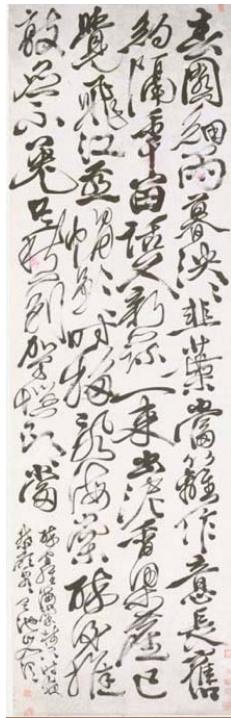 春園細雨暮泱泱韭葉當籬作意長舊
約隔年留話久新蔬一束出泥香梁塵已
覺飛江燕帽影時移亂海棠醉後推
敲應不免只愁別駕惱郎當
天池山人